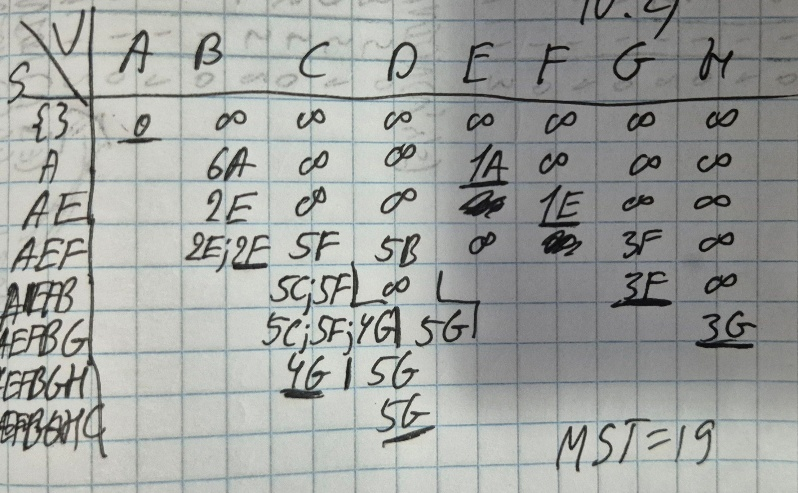 S V A B C D E F G H
{} 0 ∞ ∞ ∞ ∞ ∞ ∞ ∞
A 6A ∞ ∞ 1A ∞ ∞ ∞
AE 2E ∞ ∞ 1E ∞ ∞
AEF 2E;2E 5F 5B ∞ 3F ∞
AEFB 5C;5F ∞ 3F ∞
AEFBG 5C;5F;4G 5G 3G
EFBGH 4G 5G
EFBGHC 5G
MST=19